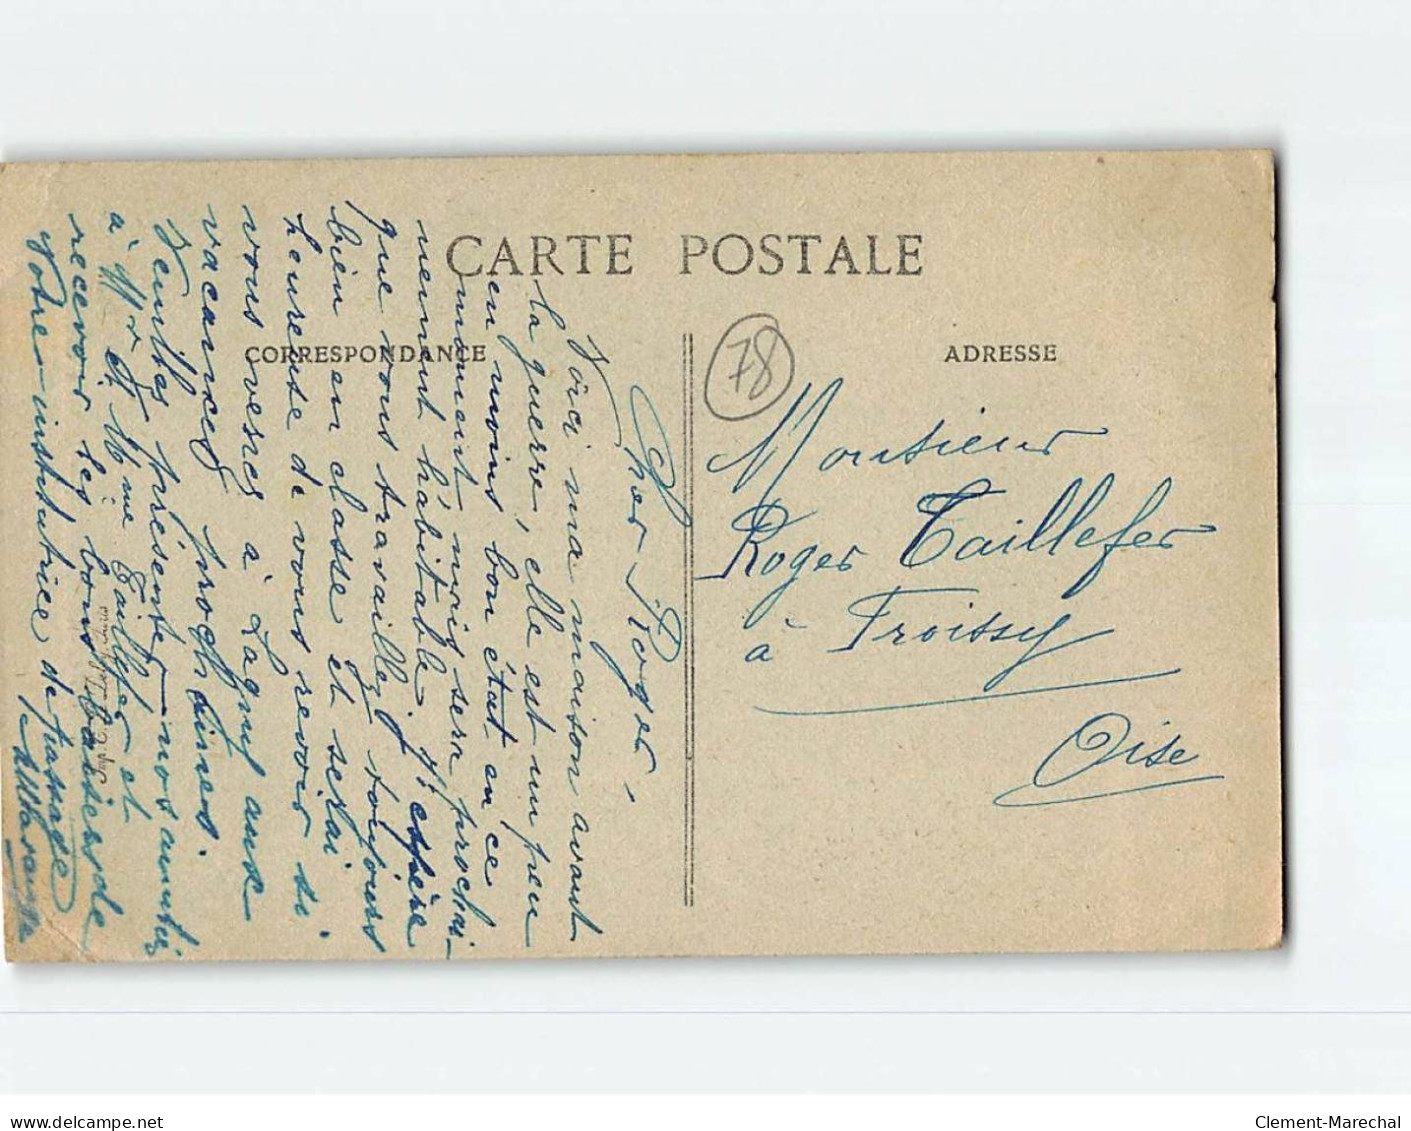 CARTE POSTALE
CORRESPONDANCE
ADRESSE
78
Monsieur
Roger Taillefer
à Froissy
Oise
Cher Roger,
Voici ma maison avant
la guerre, elle est un peu
en moins bon état en ce
moment mais sera prochai-
nement habitable. J'espère
que vous travaillez toujours
bien en classe et serai
heureuse de vous revoir si
vous venez à Lagny aux
vacances prochaines.
Veuillez présenter mes amitiés
à Mr & Mme Taillefer et
recevoir les bons baisers de
votre institutrice de passage
www.delcampe.net
Clement-Marechal